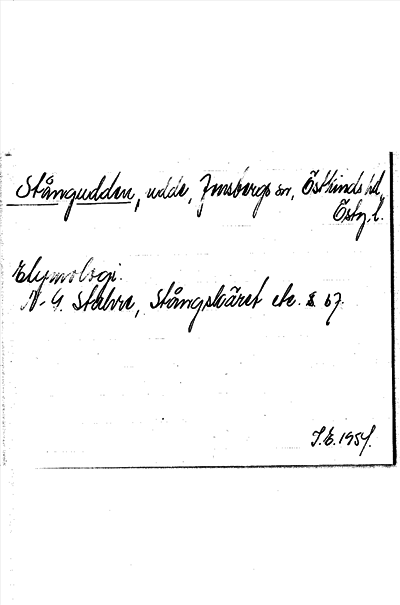 Stångudden, udde, Jonsbergs sn, Östkinds hd,
Östg. l.
Etymologi.
N.-G. Stahre, Stångskäret etc. s. 67.
J.E. 1954.